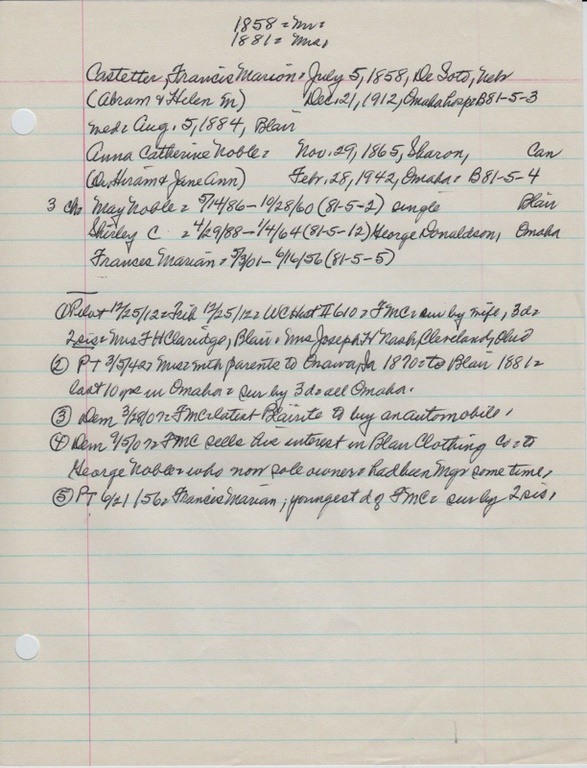 1858 = Mr =
1881 = Mrs,
Castetter, Francis Marion = July 5, 1858, De Soto, Nebr
(Abram & Helen M) Dec. 21, 1912, Omaha hosp = B81-5-3
med = Aug. 5, 1884, Blair
Anna Catherine Noble = Nov. 29, 1865, Sharon, Can
(Dr. Hiram & Jane Ann) Febr. 28, 1942, Omaha = B81-5-4
3 ch = May Noble = 5/14/86 - 10/28/60 (81-5-2) single Blair
Shirley C. = 4/29/88 - 1/4/64 (81-5-12) George Donaldson, Omaha
Frances Marian = 5/3/01 - 6/16/56 (81-5-5)
① Pilot 12/25/12 = Trib 12/25/12 = WC Hist II 610 = FMC = sur by wife, 3d =
2 sis = Mrs F H Claridge, Blair = Mrs Joseph H Nash, Cleveland, Ohio
② PT 3/5/42 = Mrs = with parents to Onawa, Ia 1870 = to Blair 1881 =
last 10 yrs in Omaha = sur by 3 d = all Omaha.
③ Dem 3/28/07 = FMC = latest Blairite to buy an automobile,
④ Dem 9/5/07 = FMC sells his interest in Blair Clothing Co = to
George Noble = who now sole owner = had been Mgr some time,
⑤ PT 6/21/56 = Francis Marian, youngest d of FMC = sur by 2 sis,